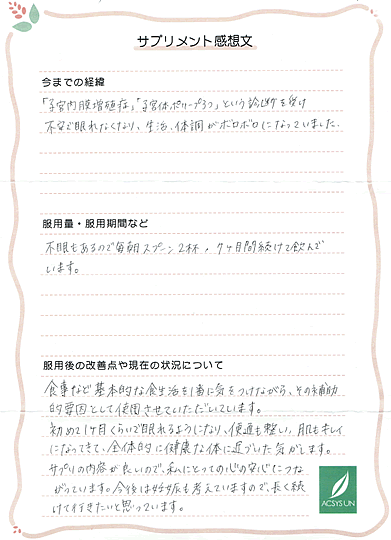 サプリメント感想文
今までの経緯
「子宮内膜増殖症」「子宮体ポリープ3つ」という診断を受け
不安で眠れなくなり、生活、体調がボロボロになっていました.
服用量・服用期間など
不眠もあるので毎朝スプーン2杯、7ヶ月間続けて飲んで
います。
服用後の改善点や現在の状況について
食事など基本的な食生活を1番に気をつけながら、その補助
的要因として使用させていただいています。
初めて1ヶ月くらいで眠れるようになり、便通も整い、肌もキレイ
になってきて、全体的に健康な体に近づいた気がします。
サプリの内容が良いので、私にとっての心の安心につな
がっています。今後は妊娠も考えていますので、長く続
けて行きたいと思っています。
ACSYSUN